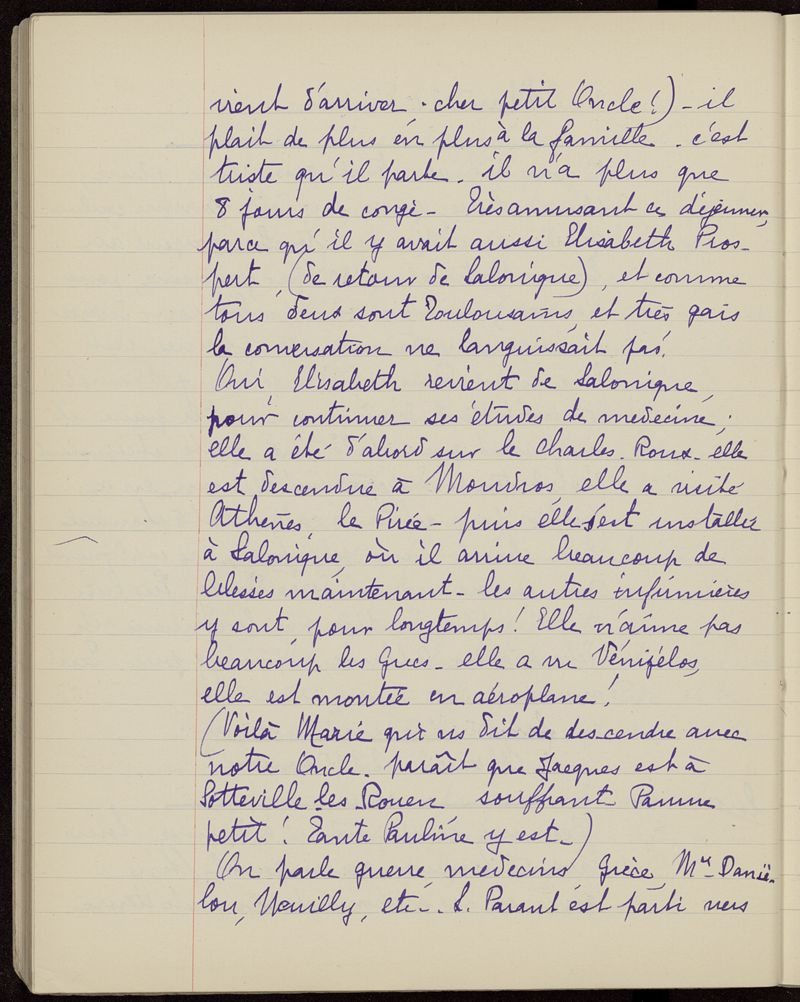 vient d'arriver. cher petit Oncle!) - il
plait de plus en plus à la famille. c'est
triste qu'il parte. il n'a plus que
8 jours de congé - Très amusant ce déjeuner,
parce qu'il y avait aussi Elisabeth Pros-
pert, (de retour de Salonique), et comme
tous deux sont Toulousains, et très gais
la conversation ne languissait pas.
Oui Elisabeth revient de Salonique,
pour continuer ses études de medecine;
elle a été d'abord sur le Charles-Roux - elle
est descendue à Moudros, elle a visité
Athènes, le Pirée - puis elle s'est installée
à Salonique, où il arrive beaucoup de
blessés maintenant - les autres infirmières
y sont, pour longtemps! Elle n'aime pas
beaucoup les Grecs - elle a vu Vénizélos,
elle est montée en aéroplane!
(Voilà Marie qui ns dit de descendre avec
notre Oncle. paraît que Jacques est à
Sotteville-les-Rouen souffrant Pauvre
petit! Tante Pauline y est -)
On parle guerre, medecins, Grèce, Danié-
lou, Neuilly, etc -. Parant est parti vers